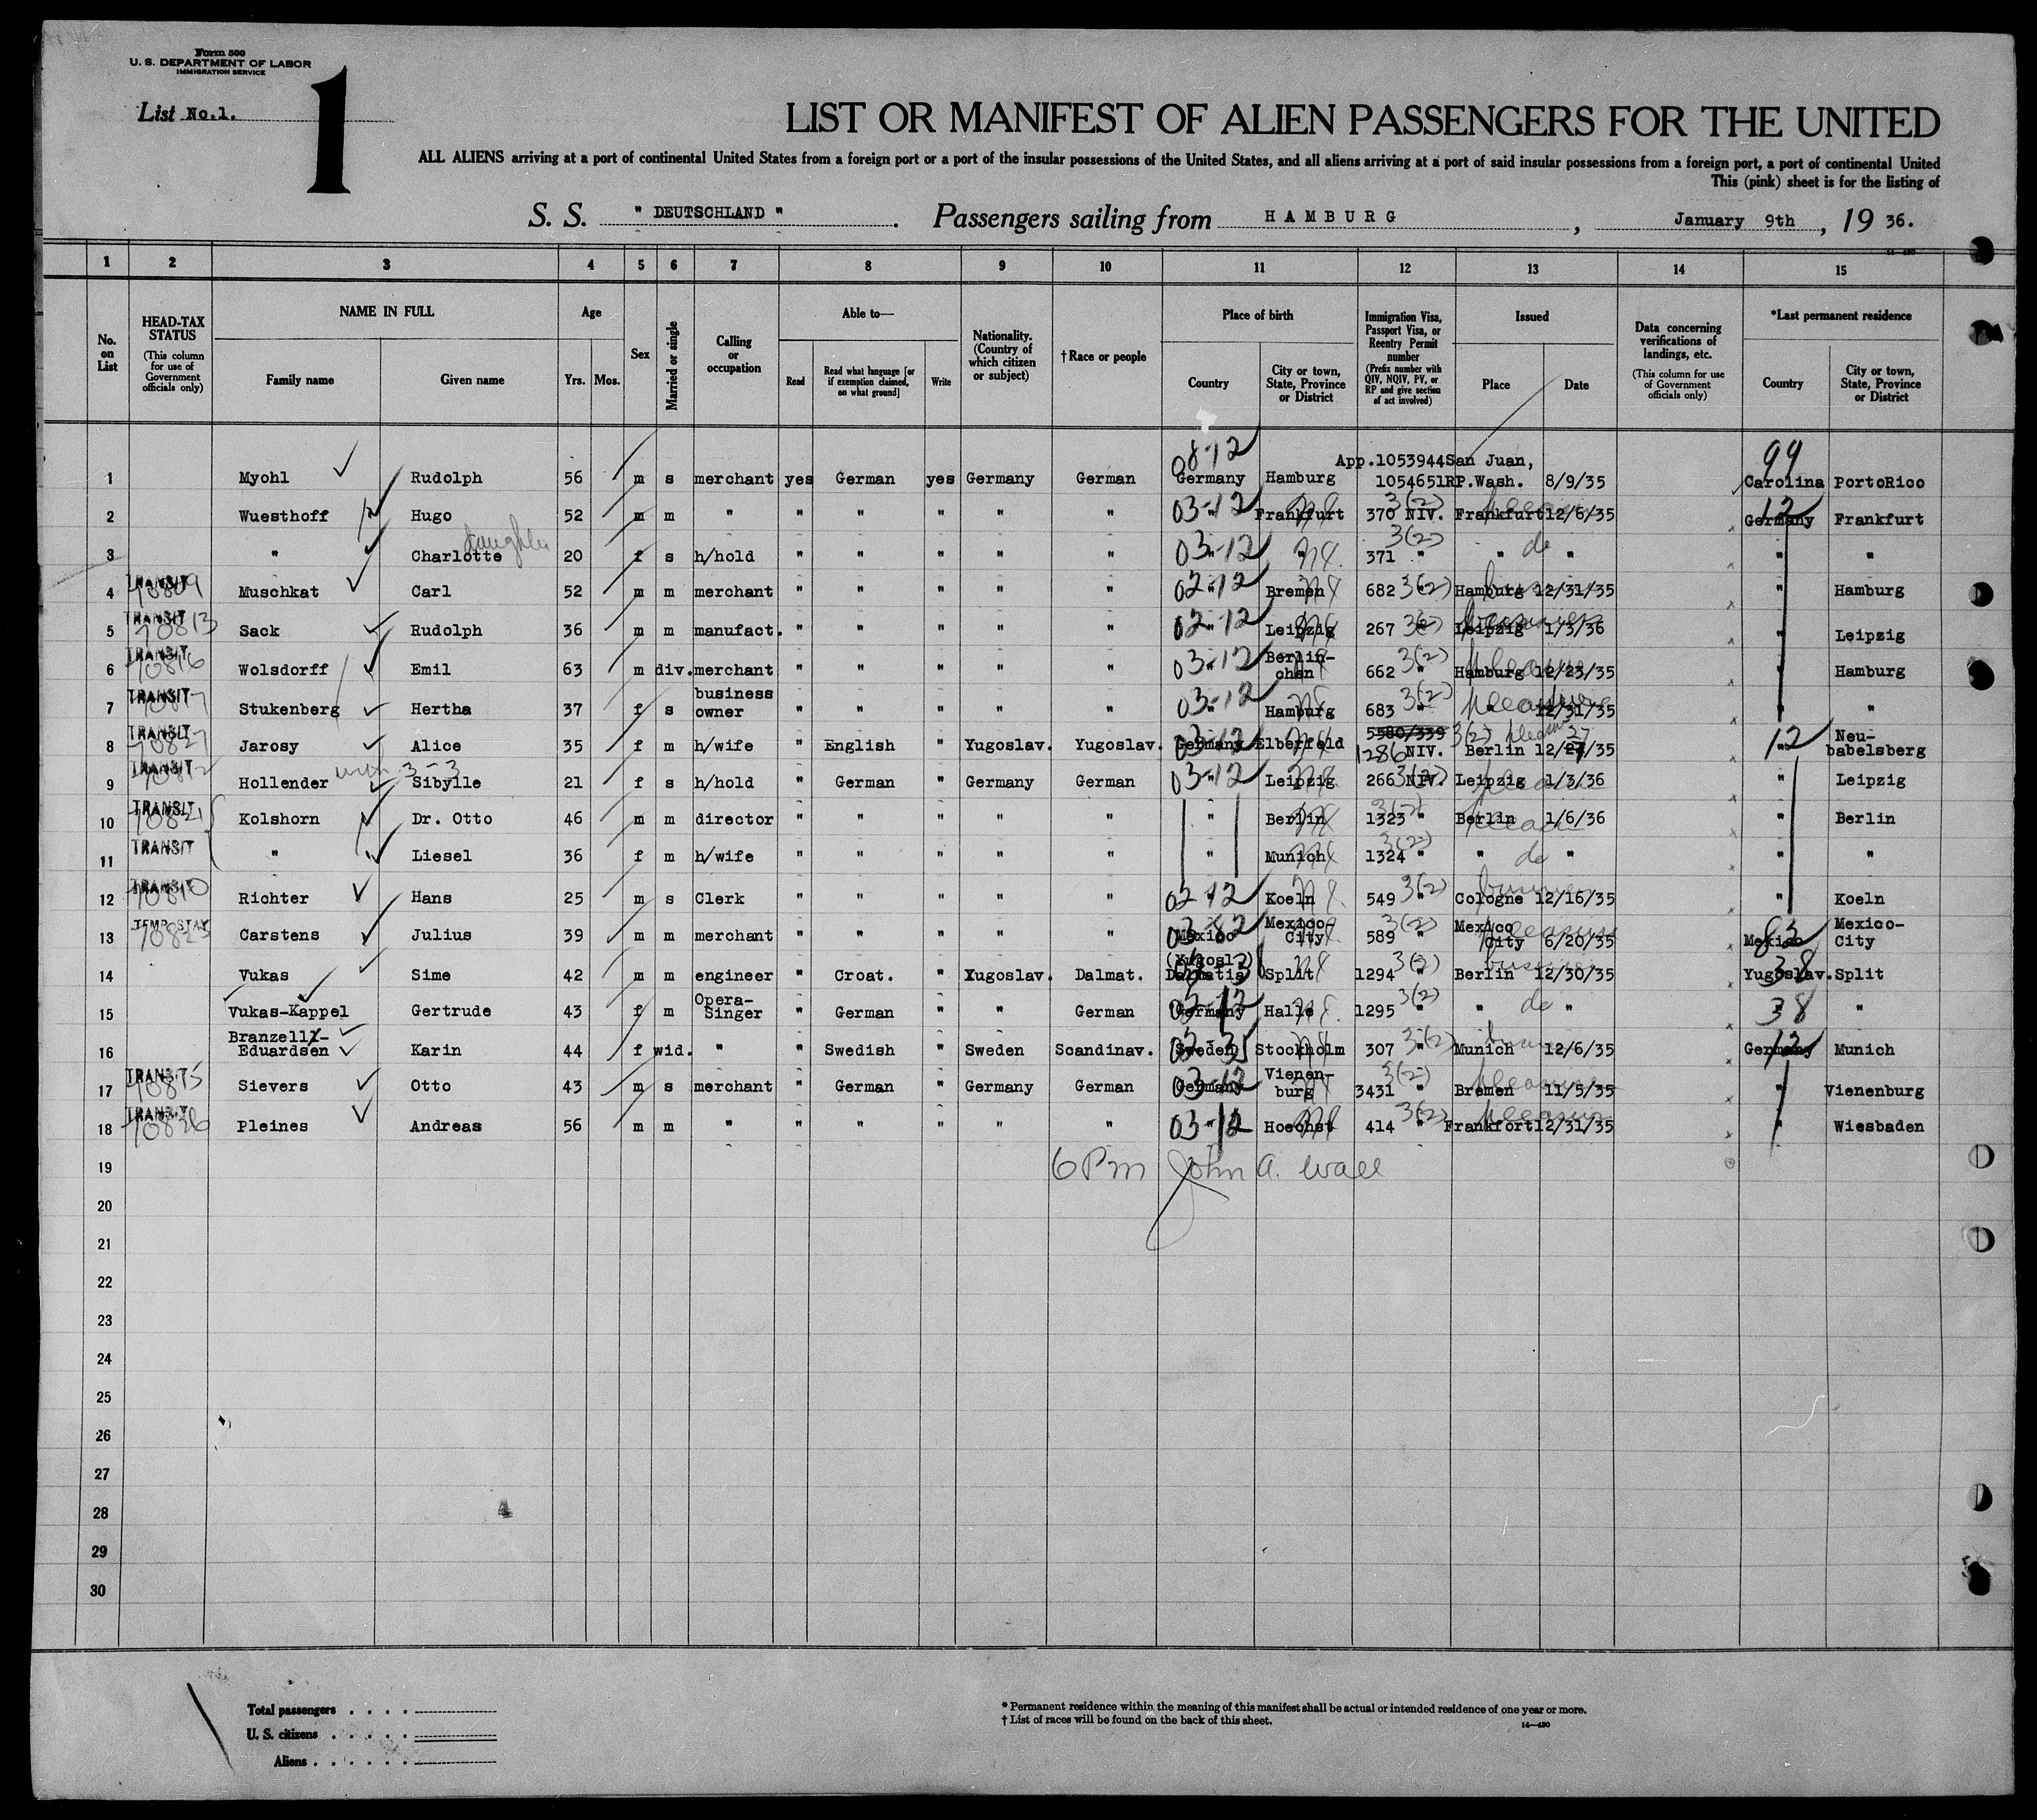 Form 500
U. S. DEPARTMENT OF LABOR
IMMIGRATION SERVICE
List No.1.
1
LIST OR MANIFEST OF ALIEN PASSENGERS FOR THE UNITED
ALL ALIENS arriving at a port of continental United States from a foreign port or a port of the insular possessions of the United States, and all aliens arriving at a port of said insular possessions from a foreign port, a port of continental United
This (pink) sheet is for the listing of
S. S. " DEUTSCHLAND " . Passengers sailing from HAMBURG , January 9th , 19 36.
1 2 3 4 5 6 7 8 9 10 11 12 13 14 15
No. on List
HEAD-TAX STATUS (This column for use of Government officials only)
NAME IN FULL Family name Given name
Age Yrs. Mos.
Sex
Married or single
Calling or occupation
Able to— Read Read what language [or if exemption claimed, on what ground] Write
Nationality. (Country of which citizen or subject)
†Race or people
Place of birth Country City or town, State, Province or District
Immigration Visa, Passport Visa, or Reentry Permit number (Prefix number with QIV, NQIV, PV, or RP and give section of act involved)
Issued Place Date
Data concerning verifications of landings, etc. (This column for use of Government officials only)
*Last permanent residence Country City or town, State, Province or District
1 Myohl Rudolph 56 m s merchant yes German yes Germany German 08-12 Germany Hamburg App.1053944 San Juan, 1054651RP.Wash. 8/9/35 99 Carolina PortoRico
2 Wuesthoff Hugo 52 m m " " " " " " 03-12 " Frankfurt 370 NIV. 3(2) Frankfurt 12/6/35 12 Germany Frankfurt
3 " Charlotte daughter 20 f s h/hold " " " " " 03-12 " " 371 " 3(2) " do " " "
4 TRANSIT 70809 Muschkat Carl 52 m m merchant " " " " " 02-12 " Bremen 682 3(2) Hamburg 12/31/35 " Hamburg
5 TRANSIT 70813 Sack Rudolph 36 m m manufact. " " " " " 02-12 " Leipzig 267 3(2) Leipzig 1/3/36 " Leipzig
6 TRANSIT 70816 Wolsdorff Emil 63 m div. merchant " " " " " 03-12 " Berlin-chen 662 3(2) Hamburg 12/23/35 " Hamburg
7 TRANSIT Stukenberg Hertha 37 f s business owner " " " " " 03-12 " Hamburg 683 " 3(2) " pleasure 12/31/35 " "
8 TRANSIT 70827 Jarosy Alice 35 f m h/wife " English " Yugoslav. Yugoslav. 03-12 Germany Elberfeld 5580/339 1286 NIV. 3(2) Berlin 12/27/35 12 " Neu-babelsberg
9 TRANSIT Hollender Sibylle 21 f s h/hold " German " Germany German 03-12 " Leipzig 266 NIV. 3(2) Leipzig 1/3/36 " Leipzig
10 TRANSIT 70821 Kolshorn Dr. Otto 46 m m director " " " " " " Berlin 1323 " 3(2) Berlin 1/6/36 " Berlin
11 TRANSIT " Liesel 36 f m h/wife " " " " " " Munich 1324 " 3(2) " do " " "
12 TRANSIT 70810 Richter Hans 25 m s Clerk " " " " " 02-12 Koeln 549 " 3(2) Cologne 12/16/35 " Koeln
13 TEMP STAY Carstens Julius 39 m m merchant " " " " " 03-82 Mexico Mexico-City 589 " 3(2) Mexico City pleasure 6/20/35 83 Mexico Mexico-City
14 Vukas Sime 42 m m engineer " Croat. " Yugoslav. Dalmat. (Yugosl?) Dalmatia Split 1294 " 3(2) Berlin 12/30/35 38 Yugoslav. Split
15 Vukas-Kappel Gertrude 43 f m Opera-Singer " German " " German 02-12 Germany Halle 1295 " 3(2) " do " 38 "
16 Branzell-Eduardsen Karin 44 f wid. " " Swedish " Sweden Scandinav. 02-35 Sweden Stockholm 307 " 3(2) Munich 12/6/35 12 Germany Munich
17 TRANSIT 70815 Sievers Otto 43 m s merchant " German " Germany German 03-12 Germany Vienen-burg 3431 " 3(2) Bremen 11/5/35 " Vienenburg
18 TRANSIT 70826 Pleines Andreas 56 m m " " " " " " 03-12 " Hoechst 414 " 3(2) Frankfort 12/31/35 " Wiesbaden
19 6 Pm John A. Wall
20
21
22
23
24
25
26
27
28
29
30
Total passengers . . . .
U. S. citizens . . . . .
Aliens . . . . . .
* Permanent residence within the meaning of this manifest shall be actual or intended residence of one year or more.
† List of races will be found on the back of this sheet.
14—430